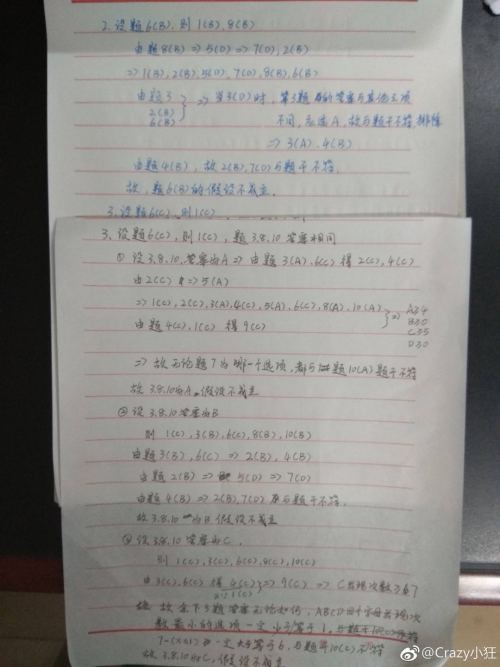 2. 设题6(B), 则1(B), 8(B)
由题8(B) ⇒ 5(D) ⇒ 7(D), 2(B)
⇒ 1(B), 2(B), 5(D), 7(D), 8(B), 6(B)
由题3
2(B)
6(B)
} ⇒ 当3(D)时, 第3题的答案与其他三项
不同, 应选A, 故与题干不符, 排除
⇒ 3(A), 4(B)
由题4(B), 故2(B), 7(D)与题干不符.
故, 题6(B)的假设不成立.
3. 设题6(C), 则1(C)
3、设题6(C), 则1(C), 题3.8.10答案相同
① 设3.8.10.答案为A ⇒ 由题3(A), 6(C) 得2(C), 4(C)
由2(C) ⇒ 5(A)
⇒ 1(C), 2(C), 3(A), 4(C), 5(A), 6(C), 8(A), 10(A)
由题4(C), 1(C) 得9(C)
} ⇒
A≥4
B≥0
C≥5
D≥0
⇒ 故无论题7为哪一个选项, 都与题10(A)题干不符
故3.8.10为A, 假设不成立
② 设3.8.10答案为B
则1(C), 3(B), 6(C), 8(B), 10(B)
由题3(B), 6(C) ⇒ 2(B), 4(B)
由题2(B) ⇒ 5(D) ⇒ 7(D)
由题4(B) ⇒ 2(B), 7(D)与题干不符.
故3.8.10为B假设不成立
③ 设3.8.10答案为C.
则1(C), 3(C), 6(C), 8(C), 10(C)
由3(C), 6(C) 得4(C) } ⇒ 9(C) ⇒ C出现次数≥7
1(C)
故余下3题答案无论如何, ABCD四个字母出现次
数最小的选项一定小于等于1,
一定大于等于6, 与题
故3.8.10为C, 假设不成立
@Crazy小狂